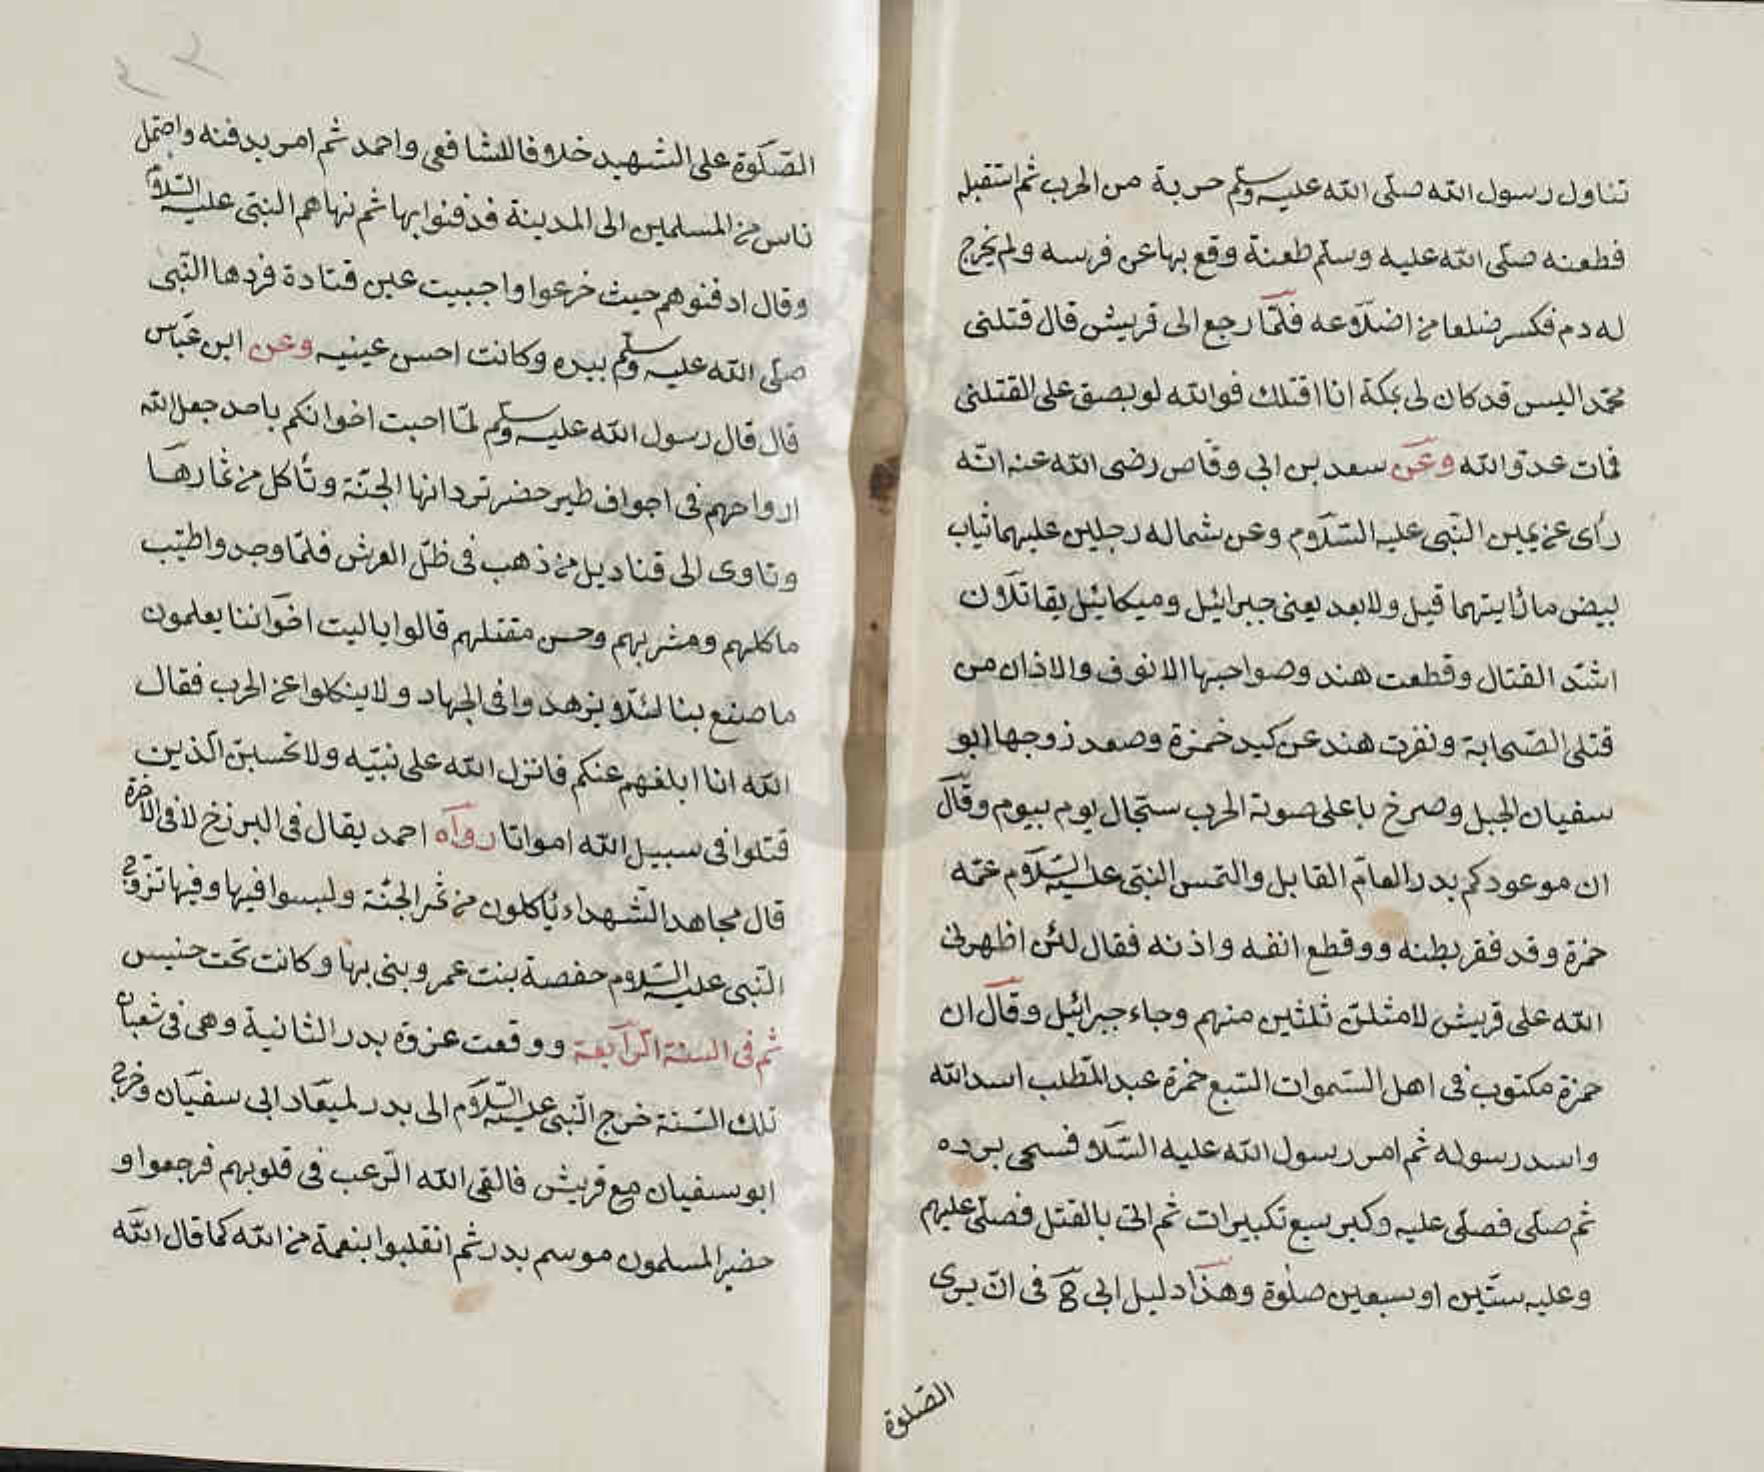 تناول رسول الله صلى الله عليه وسلم حربة من الحرب ثم استقبله
فطعنه صلى الله عليه وسلم طعنة وقع بها عن فرسه ولم يخرج
له دم فكسر ضلعا من اضلاعه فلما رجع الى قريش قال قتلنى
محمد اليس قد كان لى بمكة انا اقتلك فوالله لو بصق على القتلنى
فمات عدو الله وعن سعد بن ابى وقاص رضى الله عنه انه
رأى عن يمين النبى عليه السلام وعن شماله رجلين عليهما ثياب
لبيض ما رأيتهما قبل ولا بعد يعنى جبرائيل وميكائيل يقاتلان
اشد القتال وقطعت هند وصواحبها الانوف والاذان من
قتلى الصحابة ونفرت هند عن كبد حمزة وصعد زوجها ابو
سفيان الجبل وصرخ باعلى صوته الحرب سجال يوم بيوم وقال
ان موعودكم بدر العام القابل والتمس النبى عليه السلام عمه
حمزة وقد فقر بطنه ووقطع انفه واذنه فقال لئن اظهرنى
الله على قريش لامثلن ثلثين منهم وجاء جبرائيل وقال ان
حمزة مكتوب فى اهل السموات السبع حمزة عبد المطلب اسد الله
واسد رسوله ثم امر رسول الله عليه السلا فسجى برده
ثم صلى فصلى عليه وكبر سبع تكبيرات ثم اتى بالقتل فصلى عليهم
وعليه ستين او سبعين صلوة وهذا دليل ابى ح فى ان يرى
الصلوة
الصلوة على الشهيد خلافا للشافعى واحمد ثم امر بدفنه واحتمل
ناس من المسلمين الى المدينة فدفنوا بها ثم نهاهم النبى عليه السلام
وقال ادفنوهم حيث خرعوا واجبيت عين قتادة فردها النبى
صلى الله عليه وسلم بيده وكانت احسن عينيه وعن ابن عباس
قال قال رسول الله عليه وسلم لما احبت اخوانكم باحد جعل الله
ارواحهم فى اجواف طير حضر ترد انها الجنة وتأكل من ثمارها
وتاوى الى قناديل من ذهب فى ظل العرش فلما وجد واطيب
ماكلهم ومشربهم وحسن مقتلهم قالوا ياليت اخواننا يعلمون
ما صنع بنا لئلا يزهدوا فى الجهاد ولا ينكلوا عن الحرب فقال
الله انا ابلغهم عنكم فانزل الله على نبيه ولا تحسبن الذين
قتلوا فى سبيل الله امواتا رواه احمد يقال فى البرزخ لا فى الاخرة
قال مجاهد الشهداء ياكلون من ثمر الجنة ولبسوا فيها وفيها تزوج
النبى عليه السلام حفصة بنت عمر وبنى بها وكانت تحت حنيس
ثم فى السنة الرابعة ووقعت غزوة بدر الثانية وهى فى شعبان
تلك السنة خرج النبى عليه السلام الى بدر لميعاد ابى سفيان وخرج
ابو سفيان مع قريش فالقى الله الرعب فى قلوبهم فرجعوا و
حضر المسلمون موسم بدر ثم انقلبوا بنعمة من الله كما قال الله